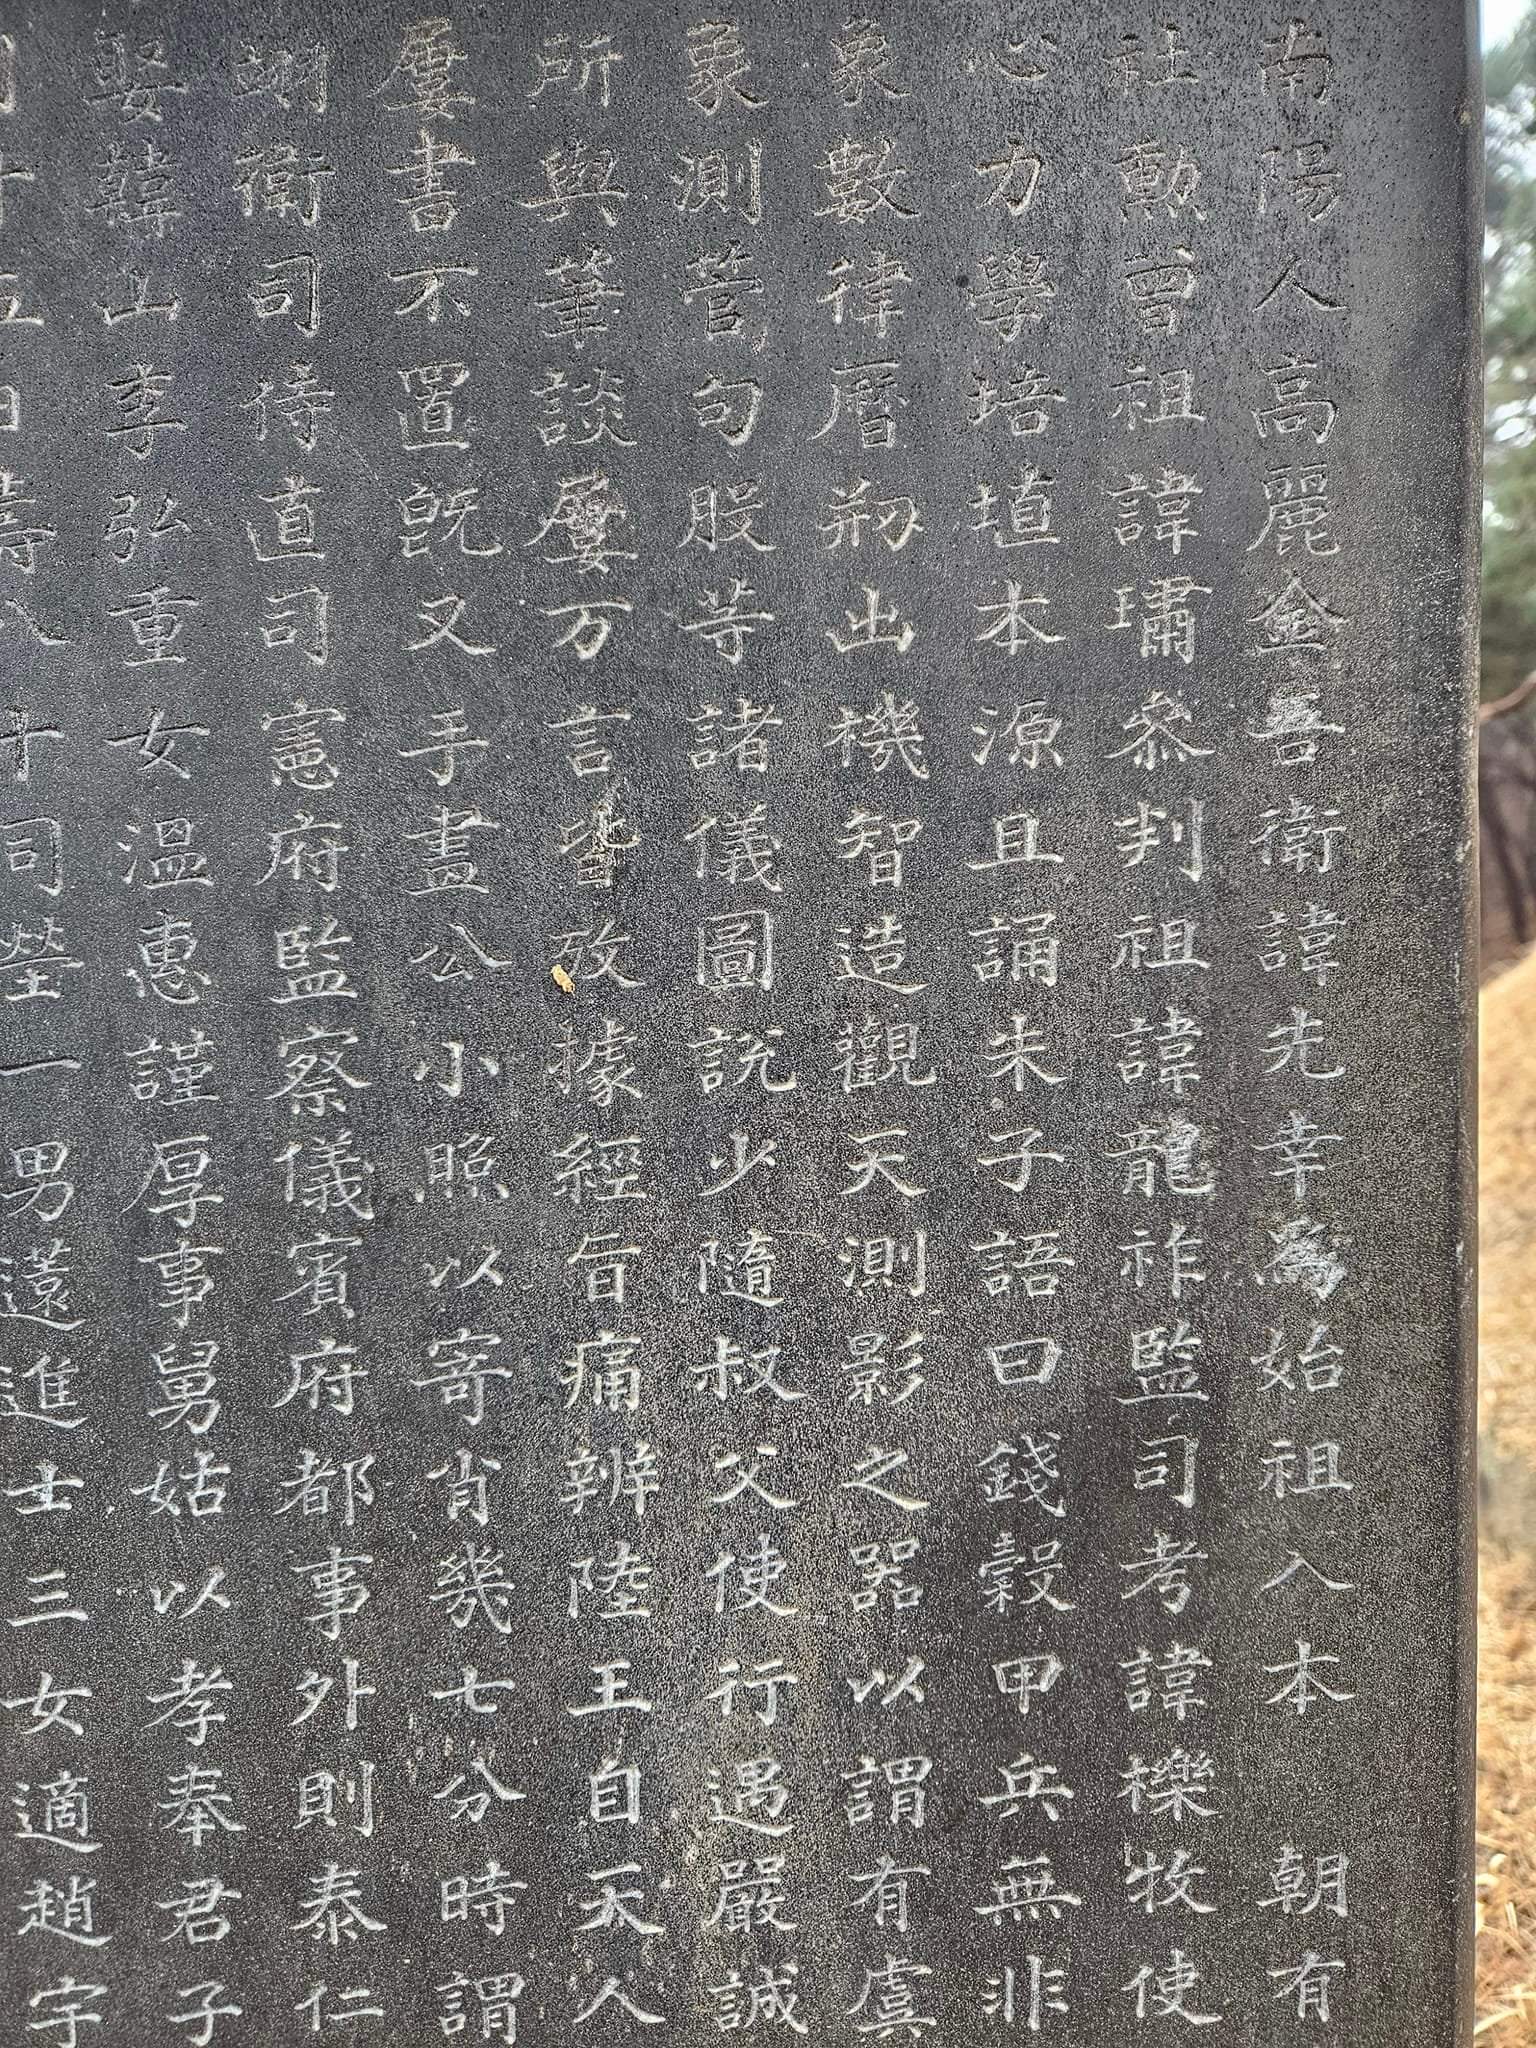 南陽人高麗金吾衛諱先幸爲始祖入本 朝有
社勲曾祖諱璛叅判祖諱龍祚監司考諱櫟牧使
心力學培埴本源且誦朱子語曰錢穀甲兵無非
象數律曆刱出機智造觀天測影之器以謂有虞
象測管句股等諸儀圖說少隨叔父使行遇嚴誠
所與筆談屢万言皆攷據經旨痛辨陸王自天人
屢書不置旣又手畵公小照以寄肖幾七分時謂
翊衛司侍直司憲府監察儀賓府都事外則泰仁
娶韓山李弘重女溫惠謹厚事舅姑以孝奉君子
十五日壽八十同塋一男薳進士三女適趙宇